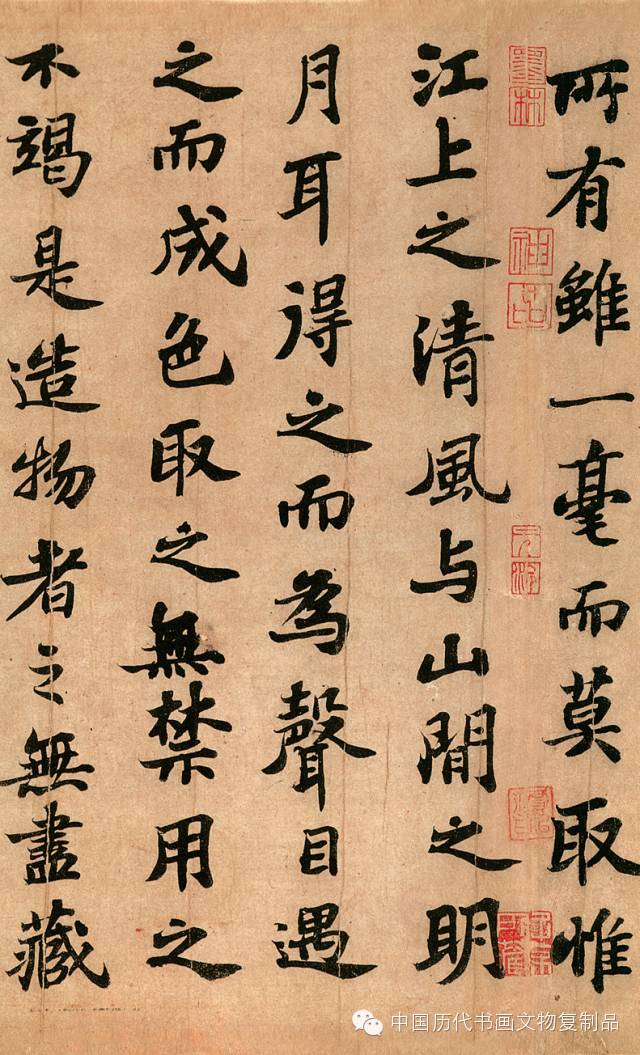 所有雖一毫而莫取惟
江上之清風与山間之明
月耳得之而為聲目遇
之而成色取之無禁用之
不竭是造物者之無盡藏
墨林
神品
中国历代书画文物复制品